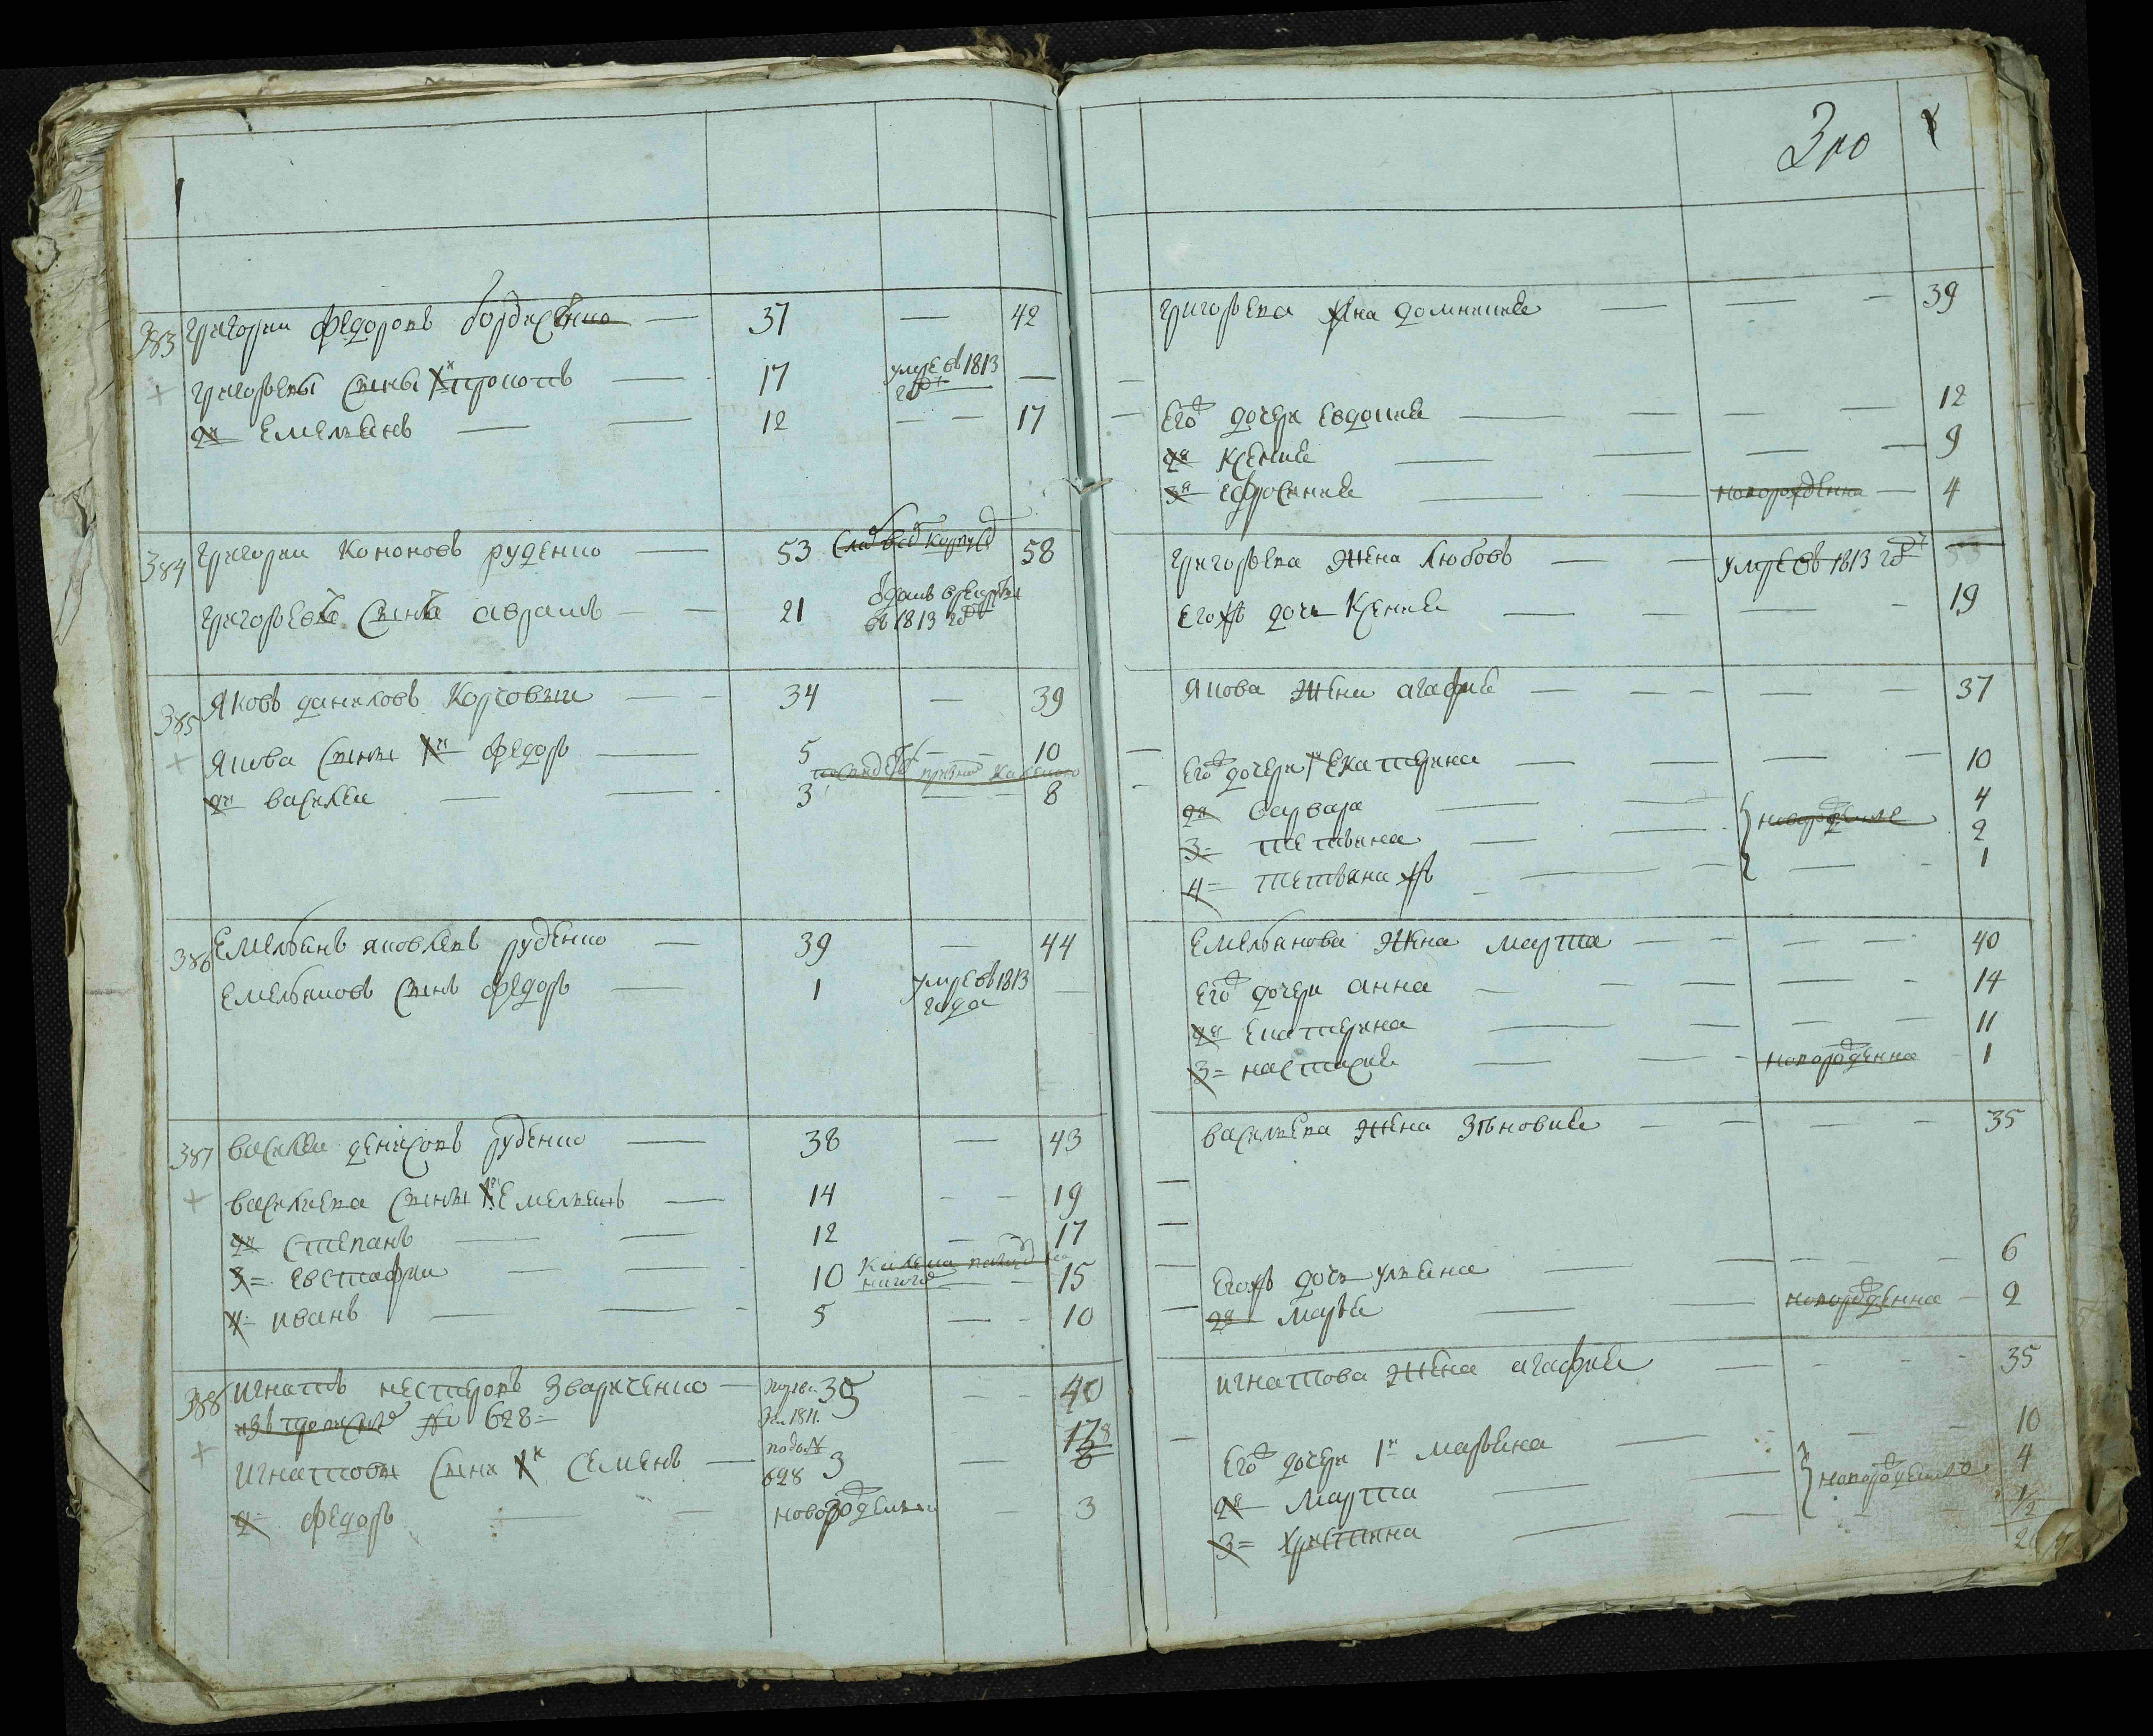 310
383 григории федоровъ бордисенко — 37 — 42
григорьевы сыны 1й прокопъ — 17 умре въ 1813 годе —
2й Емельянъ — 12 — 17
384 григории кононовъ руденко — 53 58
григорьевъ сынъ аврамъ — 21 въ 1813 годе
385 Яковъ даниловъ — 34 — 39
Якова сыны 1й федоръ — 5 — 10
2й василеи — 3 — 8
386 Емельянъ яковлевъ руденко — 39 — 44
Емельяновъ сынъ федоръ — 1 умре въ 1813 года —
387 василеи денисовъ руденко — 38 — 43
василиева сыны 1й Емельянъ — 14 — 19
2й степанъ — 12 — 17
3= евстафии — 10 — 15
4= иванъ — 5 — 10
388 игнатъ нестеровъ зварченко — 35 — 40
№ 628=
1811.
игнатовы сына 1й семенъ — подъ № 628 3 — 8
2= федоръ — новорожденъ — 3
григорьева жена домникия — 39
Его дочери евдокия — 12
2я ксения — 9
3я ефросиния — новорожденна — 4
григорьева жена любовь — умре въ 1813 годе
Его жъ дочь ксения — 19
Якова жена агафия — 37
Его дочери 1я екатерина — 10
2я варвара — 4
3= тетяна — новорожденные 2
4= тетяна жъ — 1
Емельянова жена марта — 40
Его дочери анна — 14
2я екатерина — 11
3= настасия — новорожденна — 1
васильева жена зѣновия — 35
Его жъ дочь ульяна — 6
2я марья — новорожденна — 2
игнатова жена агафия — 35
Его дочери 1я марьяна — 10
2я марта — новорожденные 4
3= христина — 1/2